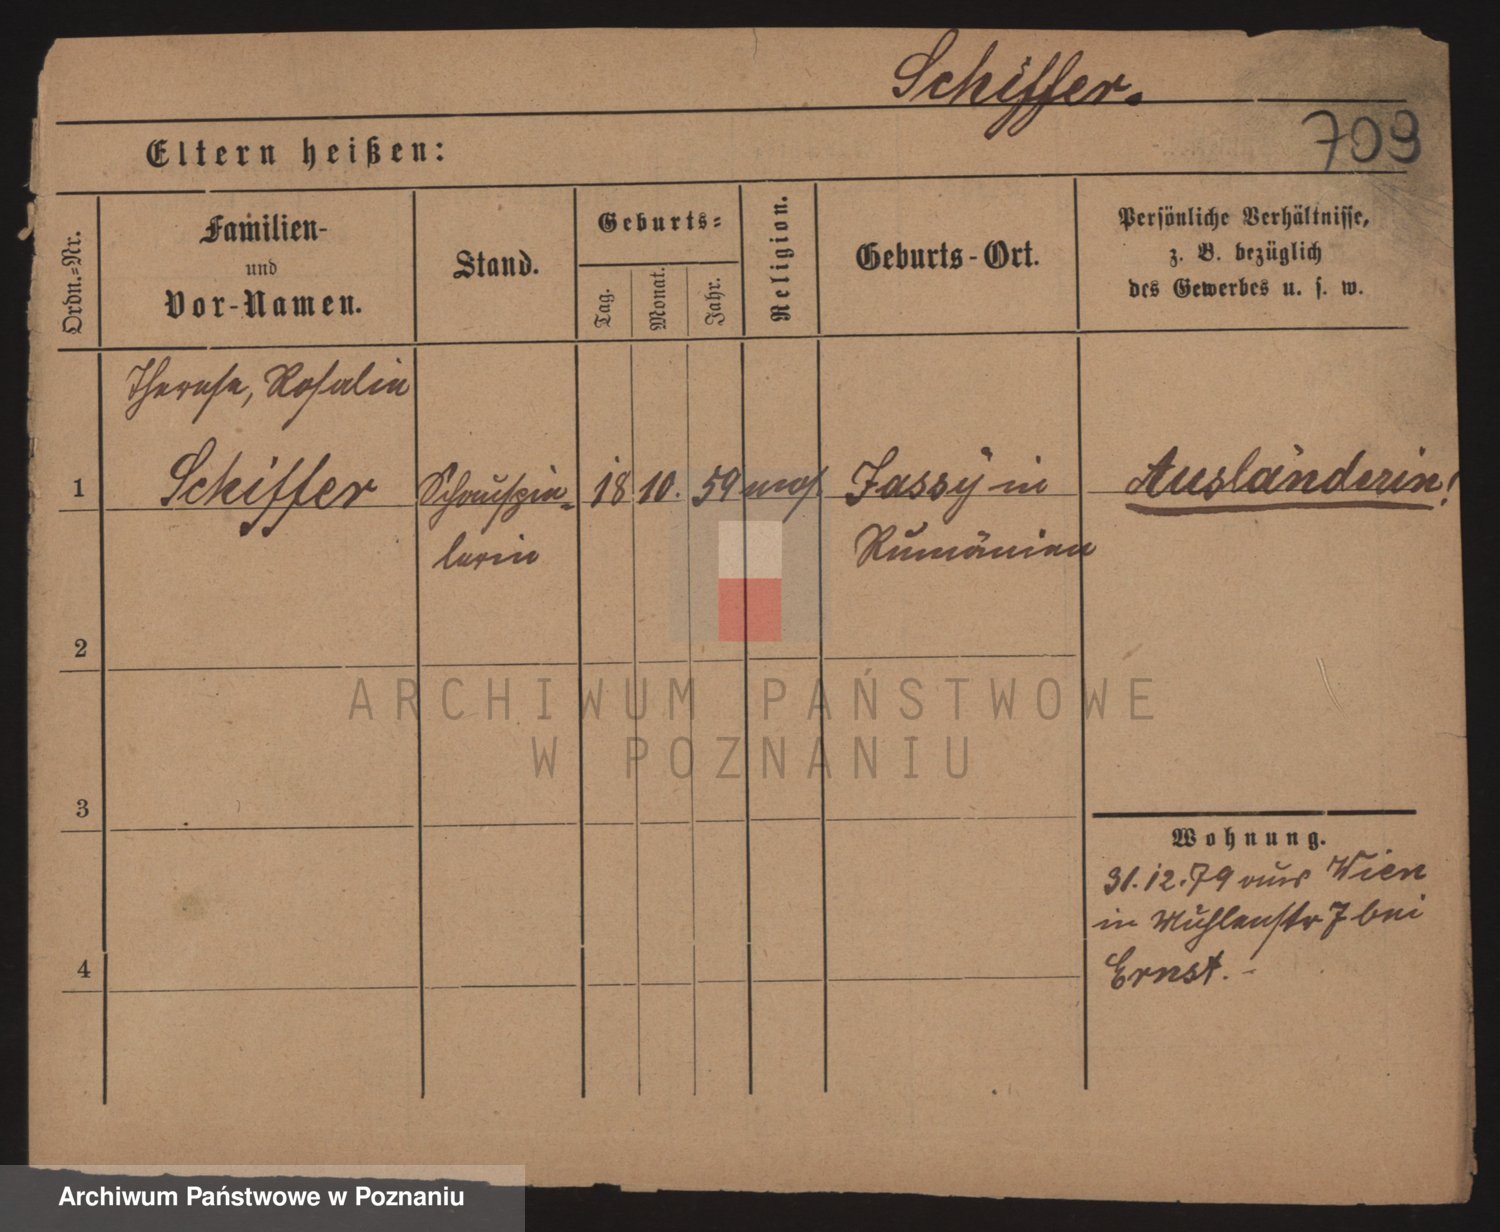 Schiffer.
709
Eltern heißen:
Ordn.=Nr.
Familien-
und
Vor-Namen.
Stand.
Geburts=
Tag.
Monat.
Jahr.
Religion.
Geburts-Ort.
Persönliche Verhältnisse,
z. B. bezüglich
des Gewerbes u. s. w.
Therese, Rosalie
1 Schiffer Schauspie= 18 10. 59 mos. Jassy in Ausländerin!
lerin Rumänien
2
ARCHIWUM PAŃSTWOWE
W POZNANIU
3
Wohnung.
31.12.79 aus Wien
in Mühlenstr 7 bei
Ernst.-
4
Archiwum Państwowe w Poznaniu